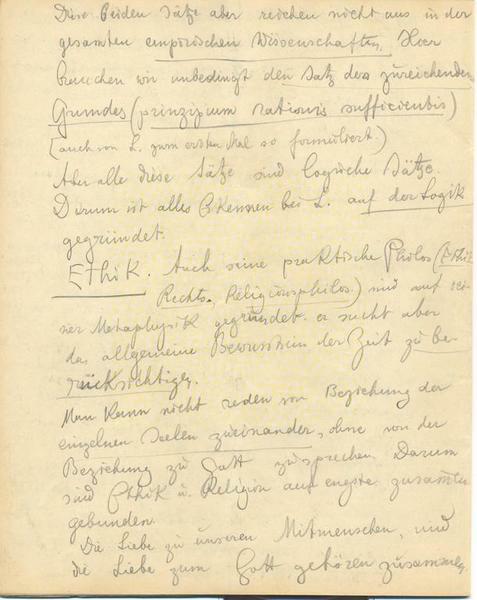 Diese beiden Sätze aber reichen nicht aus in der
gesamten empirischen Wissenschaften. Hier
brauchen wir unbedingt den Satz des zureichenden
Grundes (prinzipium rationis sufficientis)
(auch von L. zum ersten Mal so formuliert.)
Aber alle diese Sätze sind logische Sätze.
Darum ist alles Erkennen bei L. auf der Logik
gegründet.
Ethik. Auch seine praktische Philos (Ethik
Rechts. Religionsphilos.) sind auf sei-
ner Metaphysik gegründet. er sucht aber
das allgemeine Bewusstsein der Zeit zu be-
rücksichtigen.
Man kann nicht reden von Beziehung der
einzelnen Seelen zueinander, ohne von der
Beziehung zu Gott zu sprechen. Darum
sind Ethik u. Religion aufs engste zusammen
gebunden.
Die Liebe zu unseren Mitmenschen, und
die Liebe zum Gott gehören zusammen,